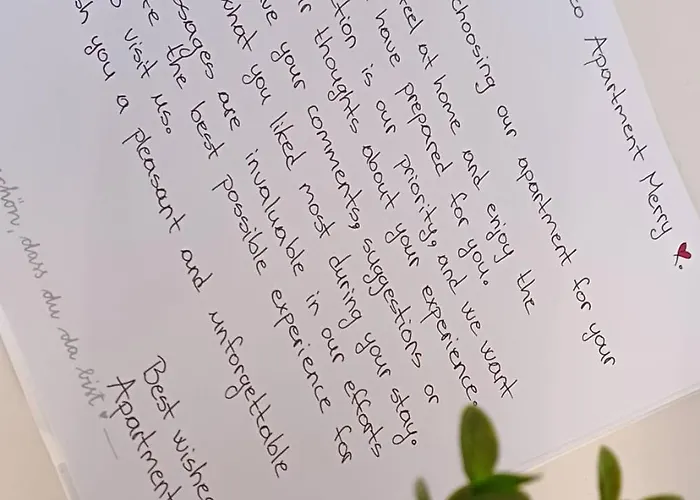 to Apartment Merry ♥.
choosing our apartment for your
eel at home and enjoy the
have prepared for you.
tion is our priority, and we want
r thoughts about your experience.
ve your comments, suggestions or
what you liked most during your stay.
ssages are invaluable in our efforts
te the best possible experience for
o visit us.
sh you a pleasant and unforgettable
Best wishes
Apartment
schön, dass du da bist ♥ —